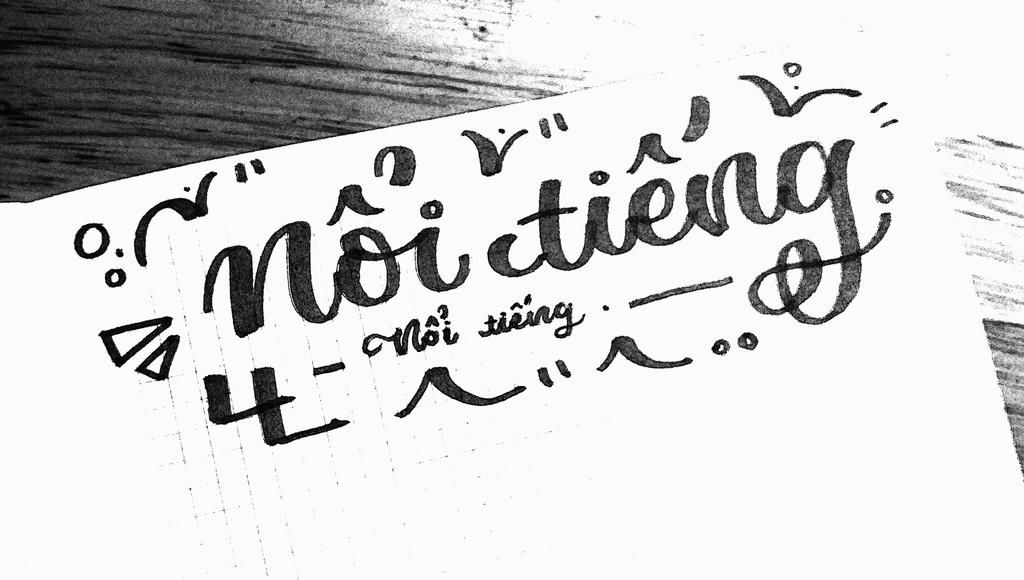 Nổi tiếng
Nổi tiếng.